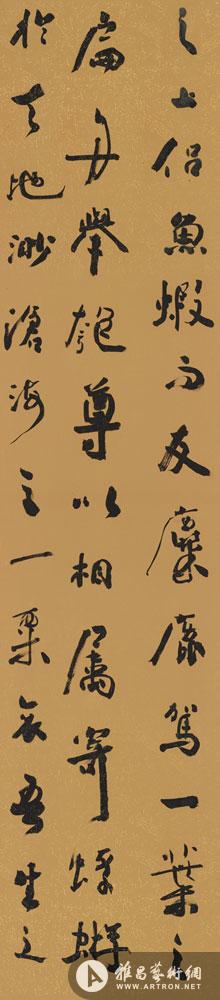 之上侣魚蝦而友麋鹿駕一葉之
扁舟舉匏尊以相属寄蜉蝣
於天地渺滄海之一粟哀吾生之
雅昌藝術網
WWW.ARTRON.NET